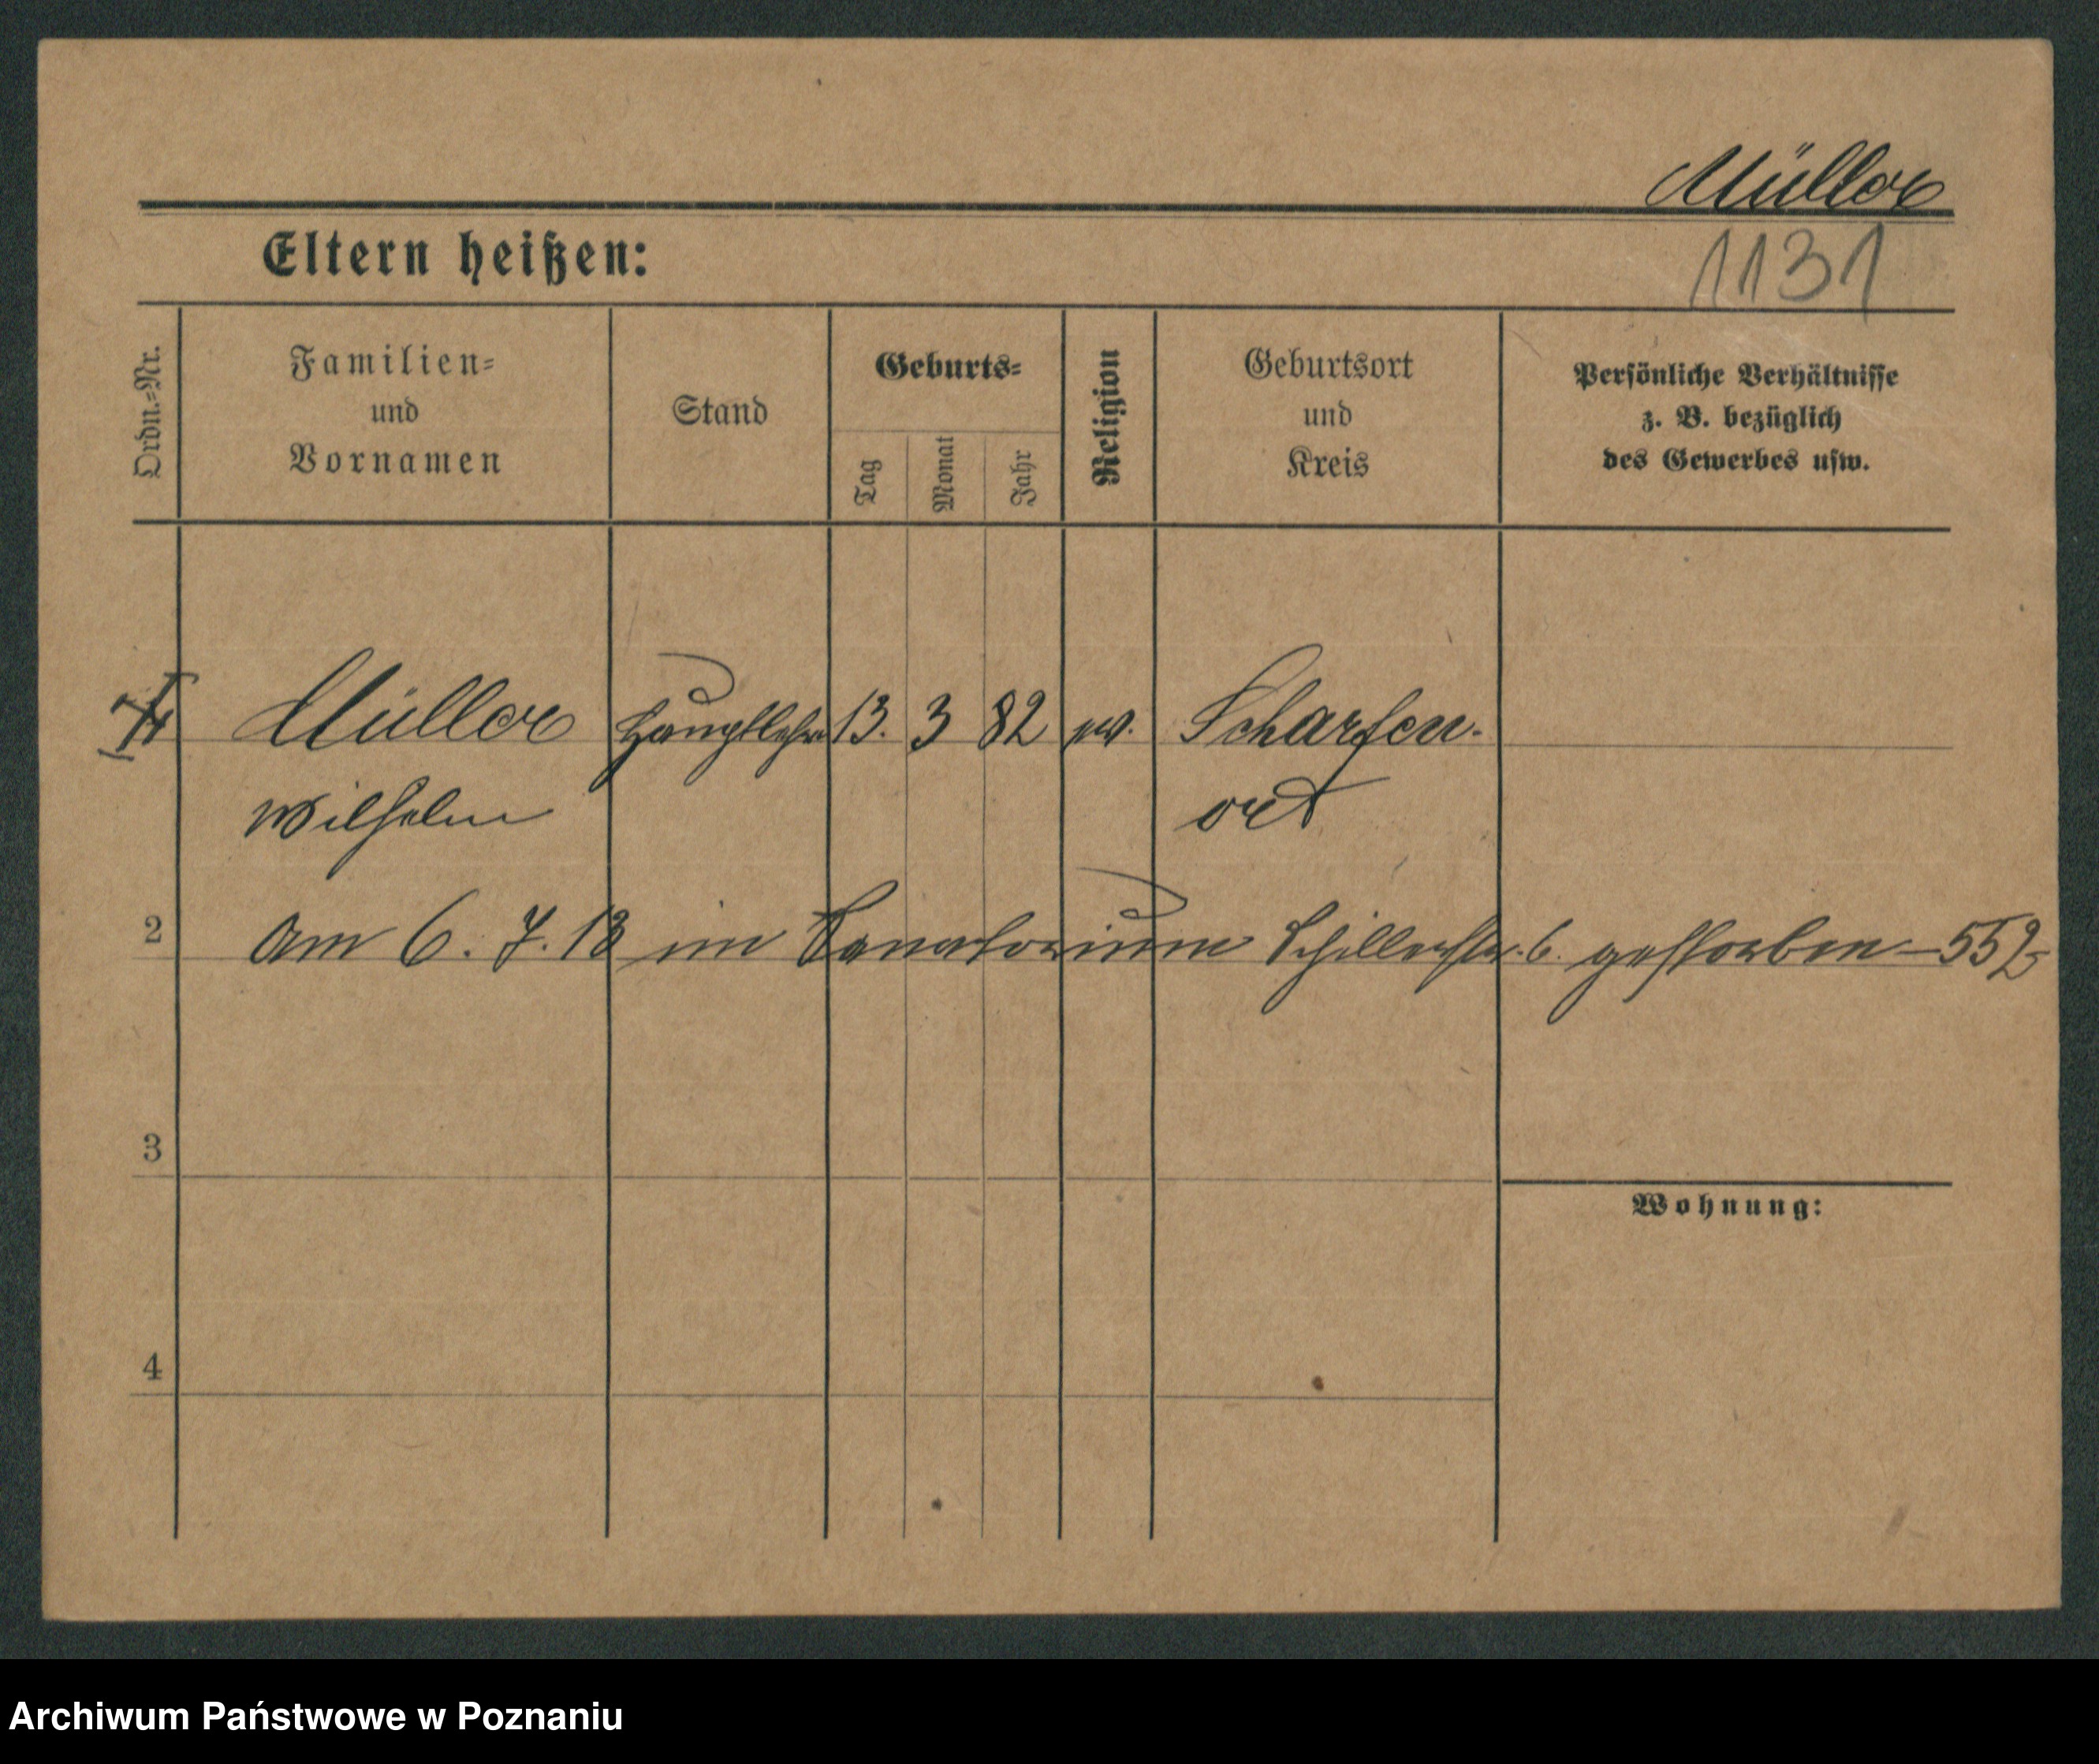 Müller
1131
Eltern heißen:
Ordn.=Nr.
Familien=
und
Vornamen
Stand
Geburts=
Tag
Monat
Jahr
Religion
Geburtsort
und
Kreis
Persönliche Verhältnisse
z. B. bezüglich
des Gewerbes usw.
Müller Hauptlehrer 13. 3 82 ev. Scharfen-
Wilhelm ort
2 Am 6. 7. 13 im Sanatorium Schillerstr. 6. gestorben - 552
3
Wohnung:
4
Archiwum Państwowe w Poznaniu